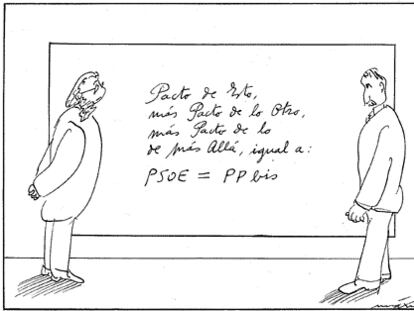 Pacto de Esto,
más Pacto de lo Otro,
más Pacto de lo
de más Allá, igual a:
PSOE = PP bis